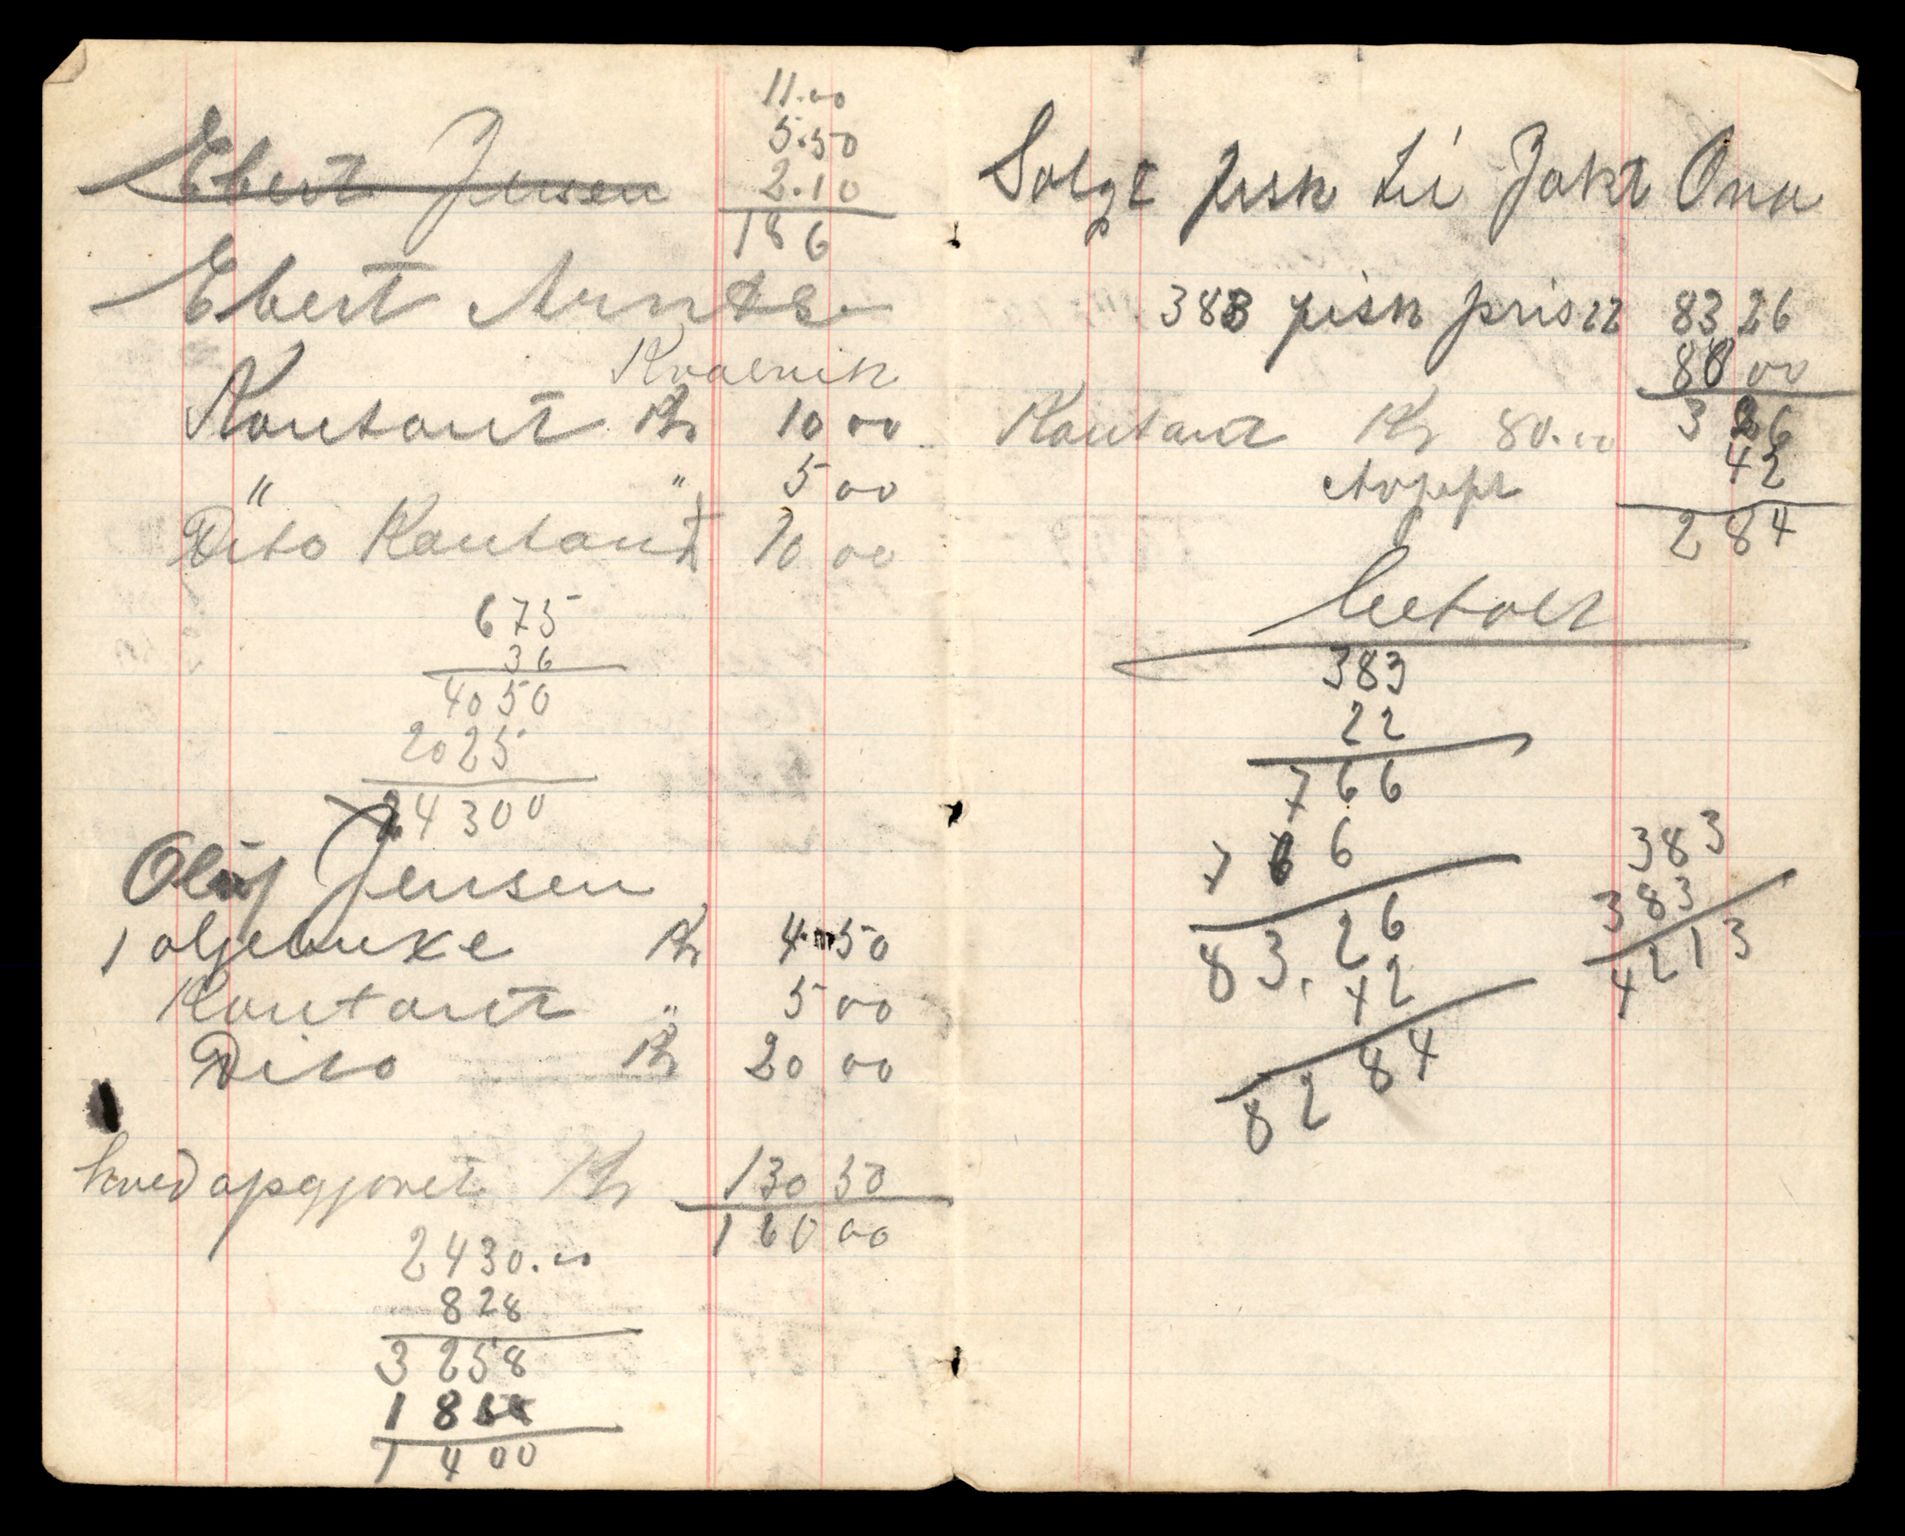 11.00
5.50
2.10
186
Ebert Jensen
Ebert Arnts
Kontant Kr 10 00
" " 5 00
Dito Kontant 10 00
675
36
4050
2025
24300
Oluf Jensen
1 oljebuxe Kr 4 50
Kontant " 5 00
Dito Kr 20 00
hved opgjoret Kr 130 50
160 00
2430.00
828
3258
18
1400
Solgt fisk til Jakt Ona
383 fisk pris 22 83 26
80 00
Kontant Kr 80.00 3 26
42
2 84
betalt
383
22
766
766
83.26
42
82 84
383
383
4213